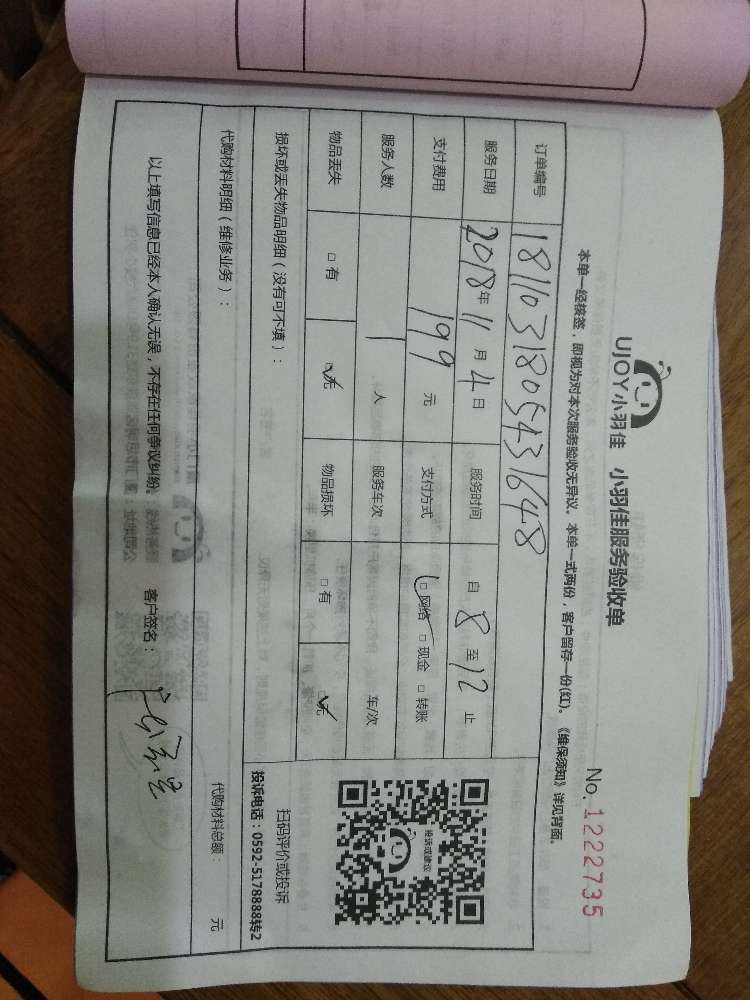 UJOY小羽佳 小羽佳服务验收单
No. 1222735
本单一经核签，即视为对本次服务验收无异议。本单一式两份，客户留存一份(红)。《维保须知》详见背面。
订单编号 1811031805431648
服务日期 2018年11月4日 服务时间 自8至12止
支付费用 199元 支付方式 □网络 □现金 □转账
服务人数 1人 服务车次 车/次
物品丢失 □有 □无 物品损坏 □有 □无
投诉或建议
扫码评价或投诉
投诉电话：0592-5178888转2
损坏或丢失物品明细（没有可不填）：
代购材料明细（维修业务）： 代购材料总额： 元
以上填写信息已经本人确认无误，不存在任何争议纠纷。 客户签名：